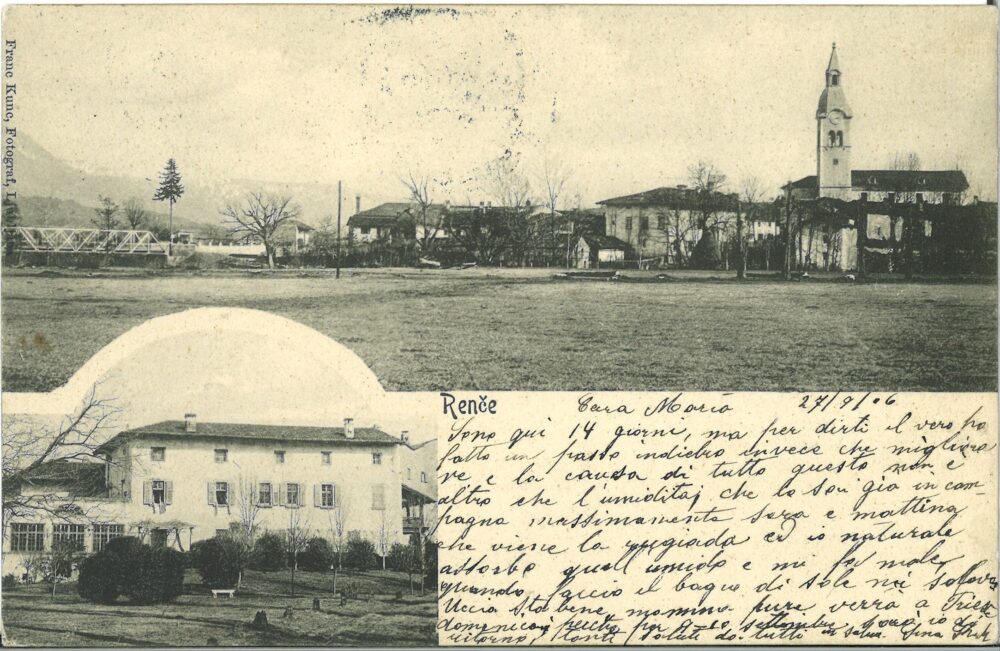 Franc Kunc, Fotograf,
Renče
Cara Maria 27/8/06
Sono qui 14 giorni, ma per dirti il vero ho
fatto un passo indietro invece che migliora
re e la causa di tutto questo non è
altro che l'umidità, che lo sai già in cam
pagna massimamente sera e mattina
che viene la rugiada ed io naturale
assorbo quell'umido e mi fa male,
quando faccio il bagno di sole mi
sta bene, mamma pure verrà a Trieste
domenica per settembre io di
ritorno, tanti saluti da tutti